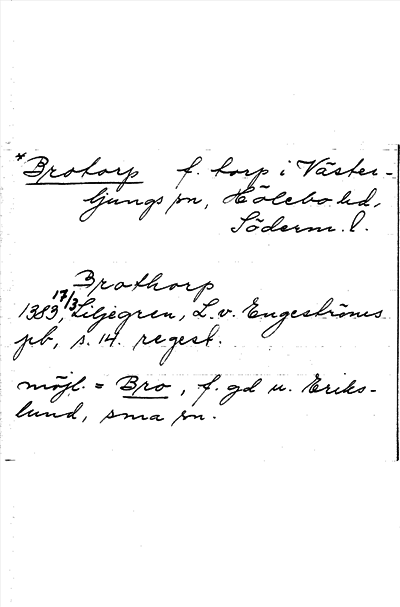 * Brotorp f. torp i Väster-
ljungs sn, Hölebo hd,
Söderm. l.
Brothorp
1383 17/3, Liljegren, L. v. Engeströms
pb, s. 14. regest.
möjl. = Bro, f. gd u. Eriks-
lund, sma sn.